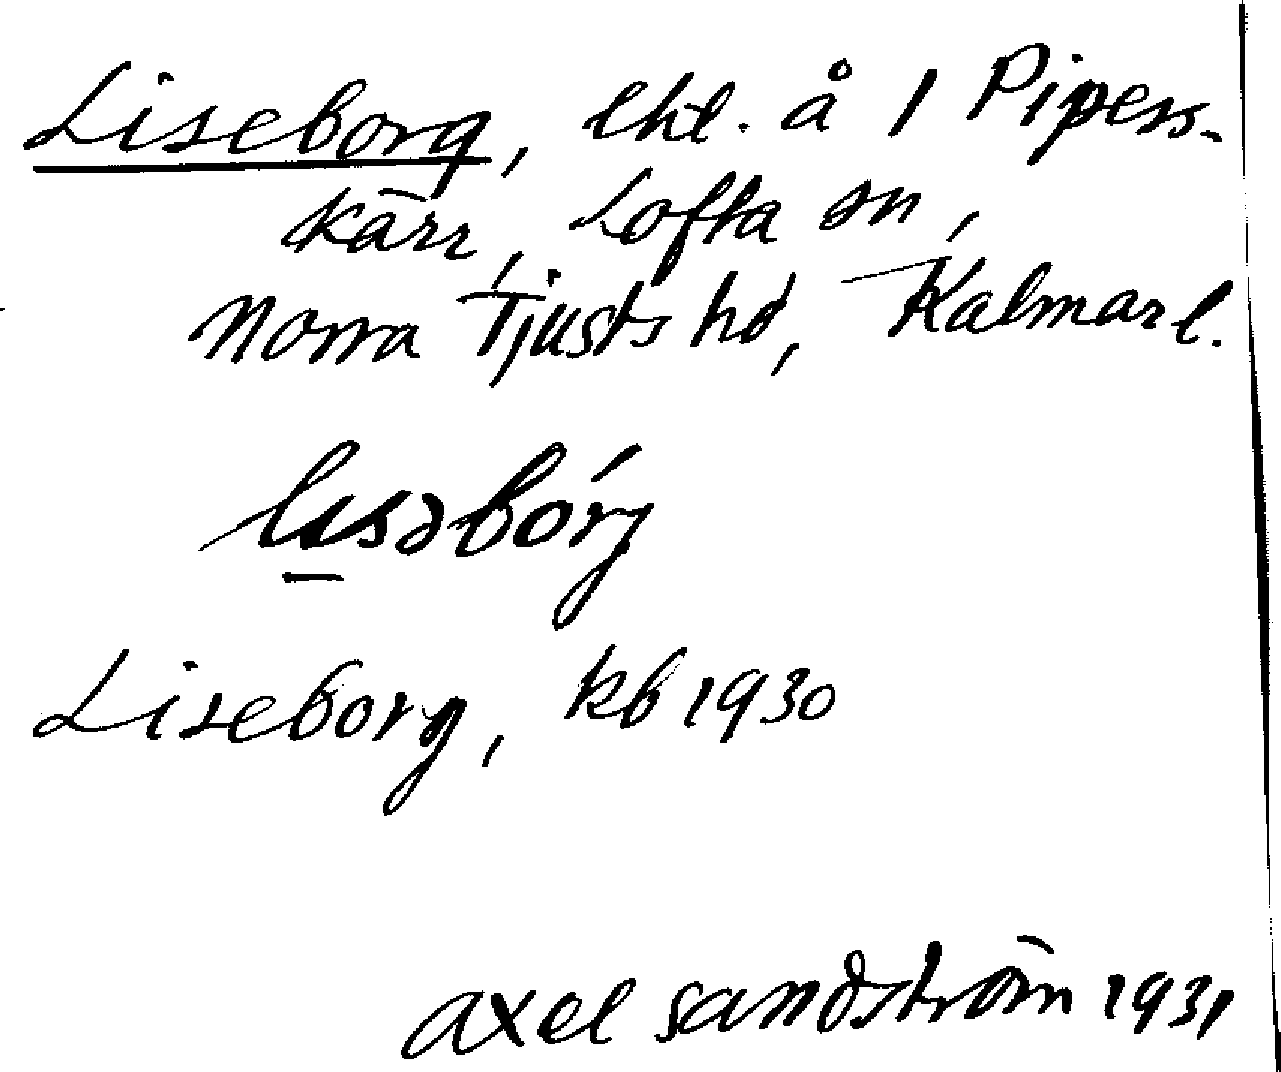 Liseborg, lht. å 1 Pipers-
kärr, Lofta sn,
Norra Tjusts hd, Kalmar l.
Liseborg, kb 1930
Axel Sandström 1931